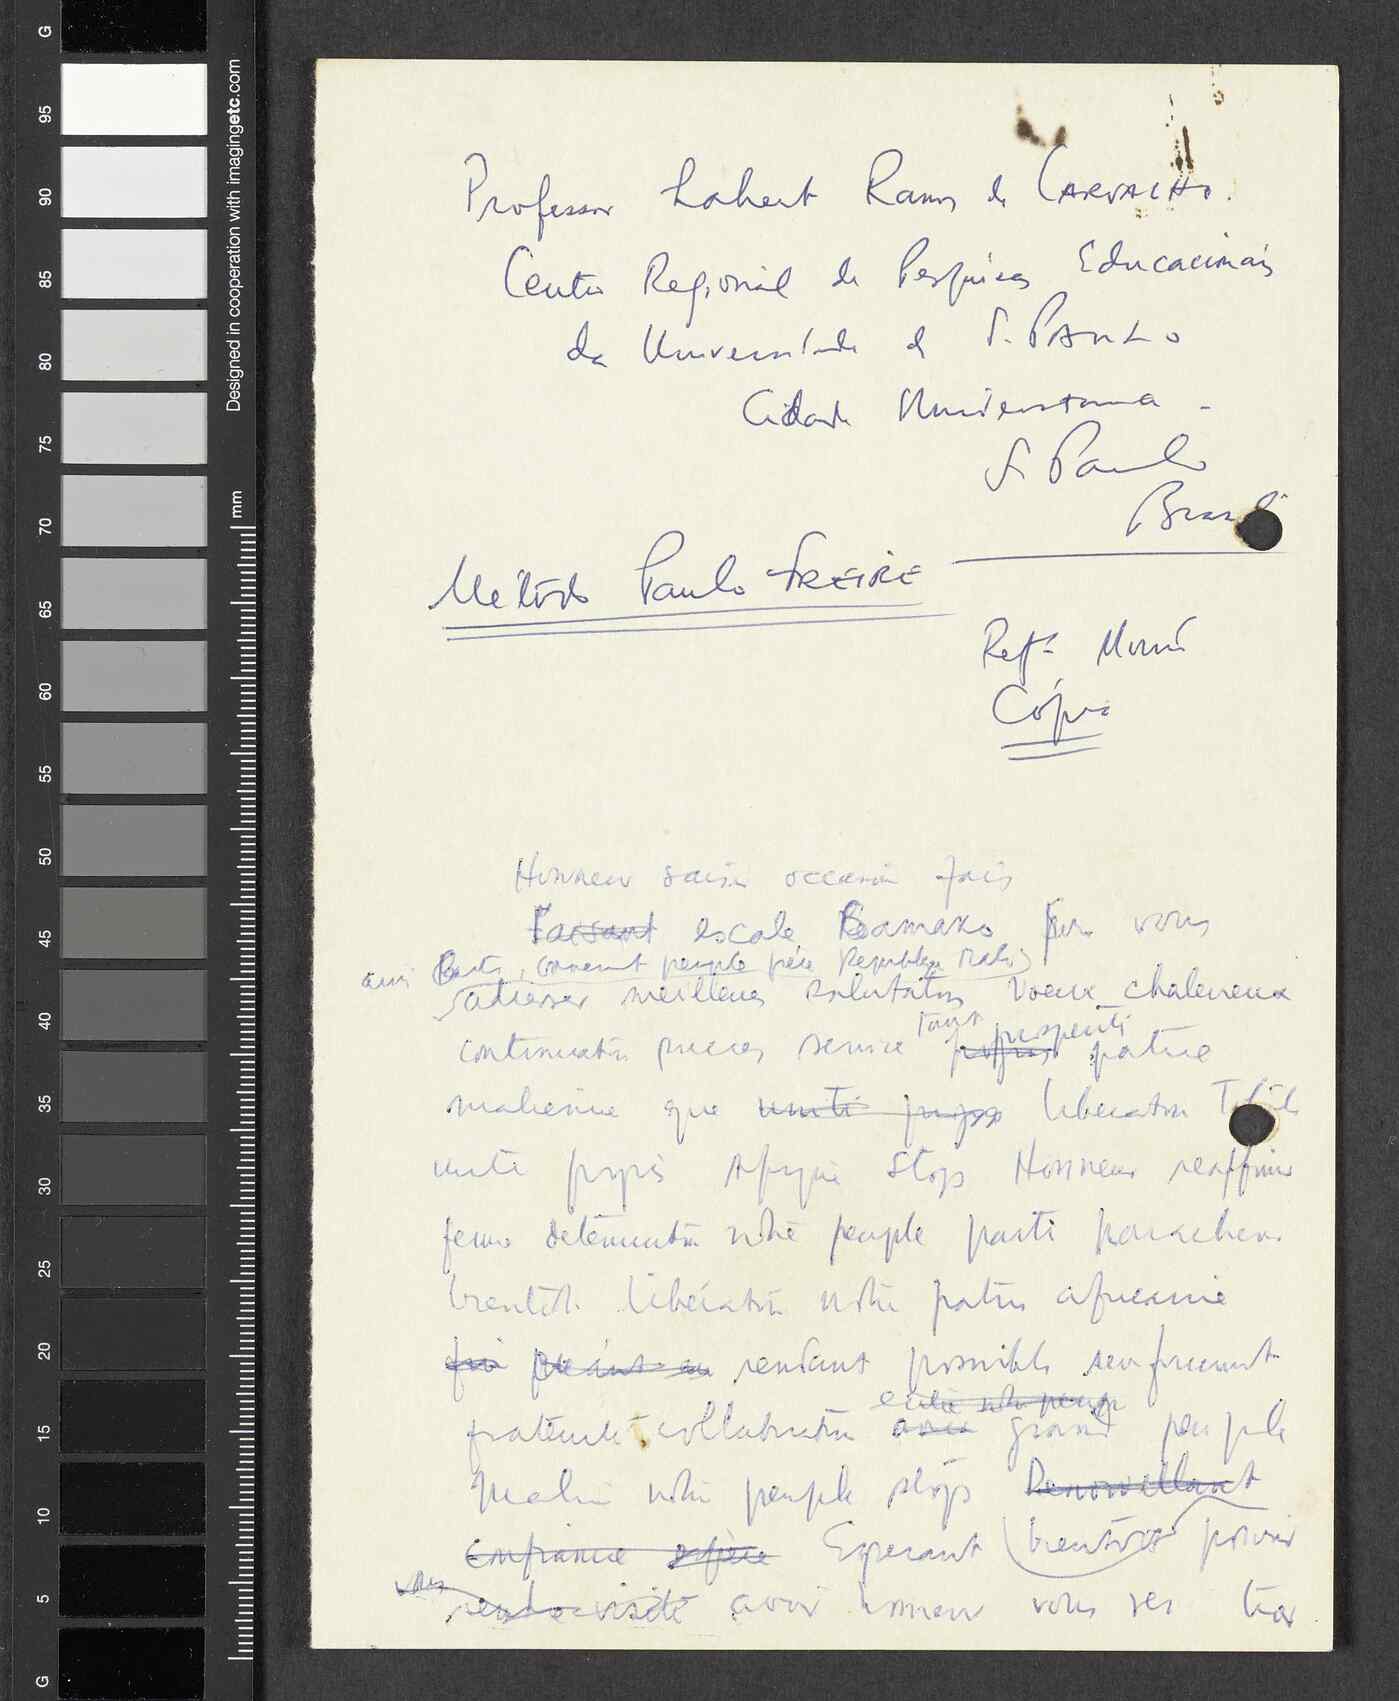 G
95
90
85
80
75
70
65
60
55
50
45
40
35
30
25
20
15
10
5
G
Designed in cooperation with imagingetc.com
mm
Professor Lahert Ramos de CARVALHO.
Centro Regional de Pesquisas Educacionais
da Universidade de S. PAULO
Cidade Universitaria -
S. Paulo
Brasil
Método Paulo FREIRE
Cópia
Honneur saisir occasion fais
Passant escale Bamako vous
ami Parti, peuple frère République Mali
adresser meilleures salutations voeux chaleureux
continuation succès service tant prospérité patrie
malienne que unité libération
unité Afrique Stop Honneur réaffirmer
ferme détermination notre peuple parti parachever
bientôt libération notre patrie africaine
rendant possible
fraternelle collaboration entre notre peuple avec grand peuple
Malien notre peuple stop Renouvellant
confiance Espérant bientôt pouvoir
vous rendre visite avoir honneur vous